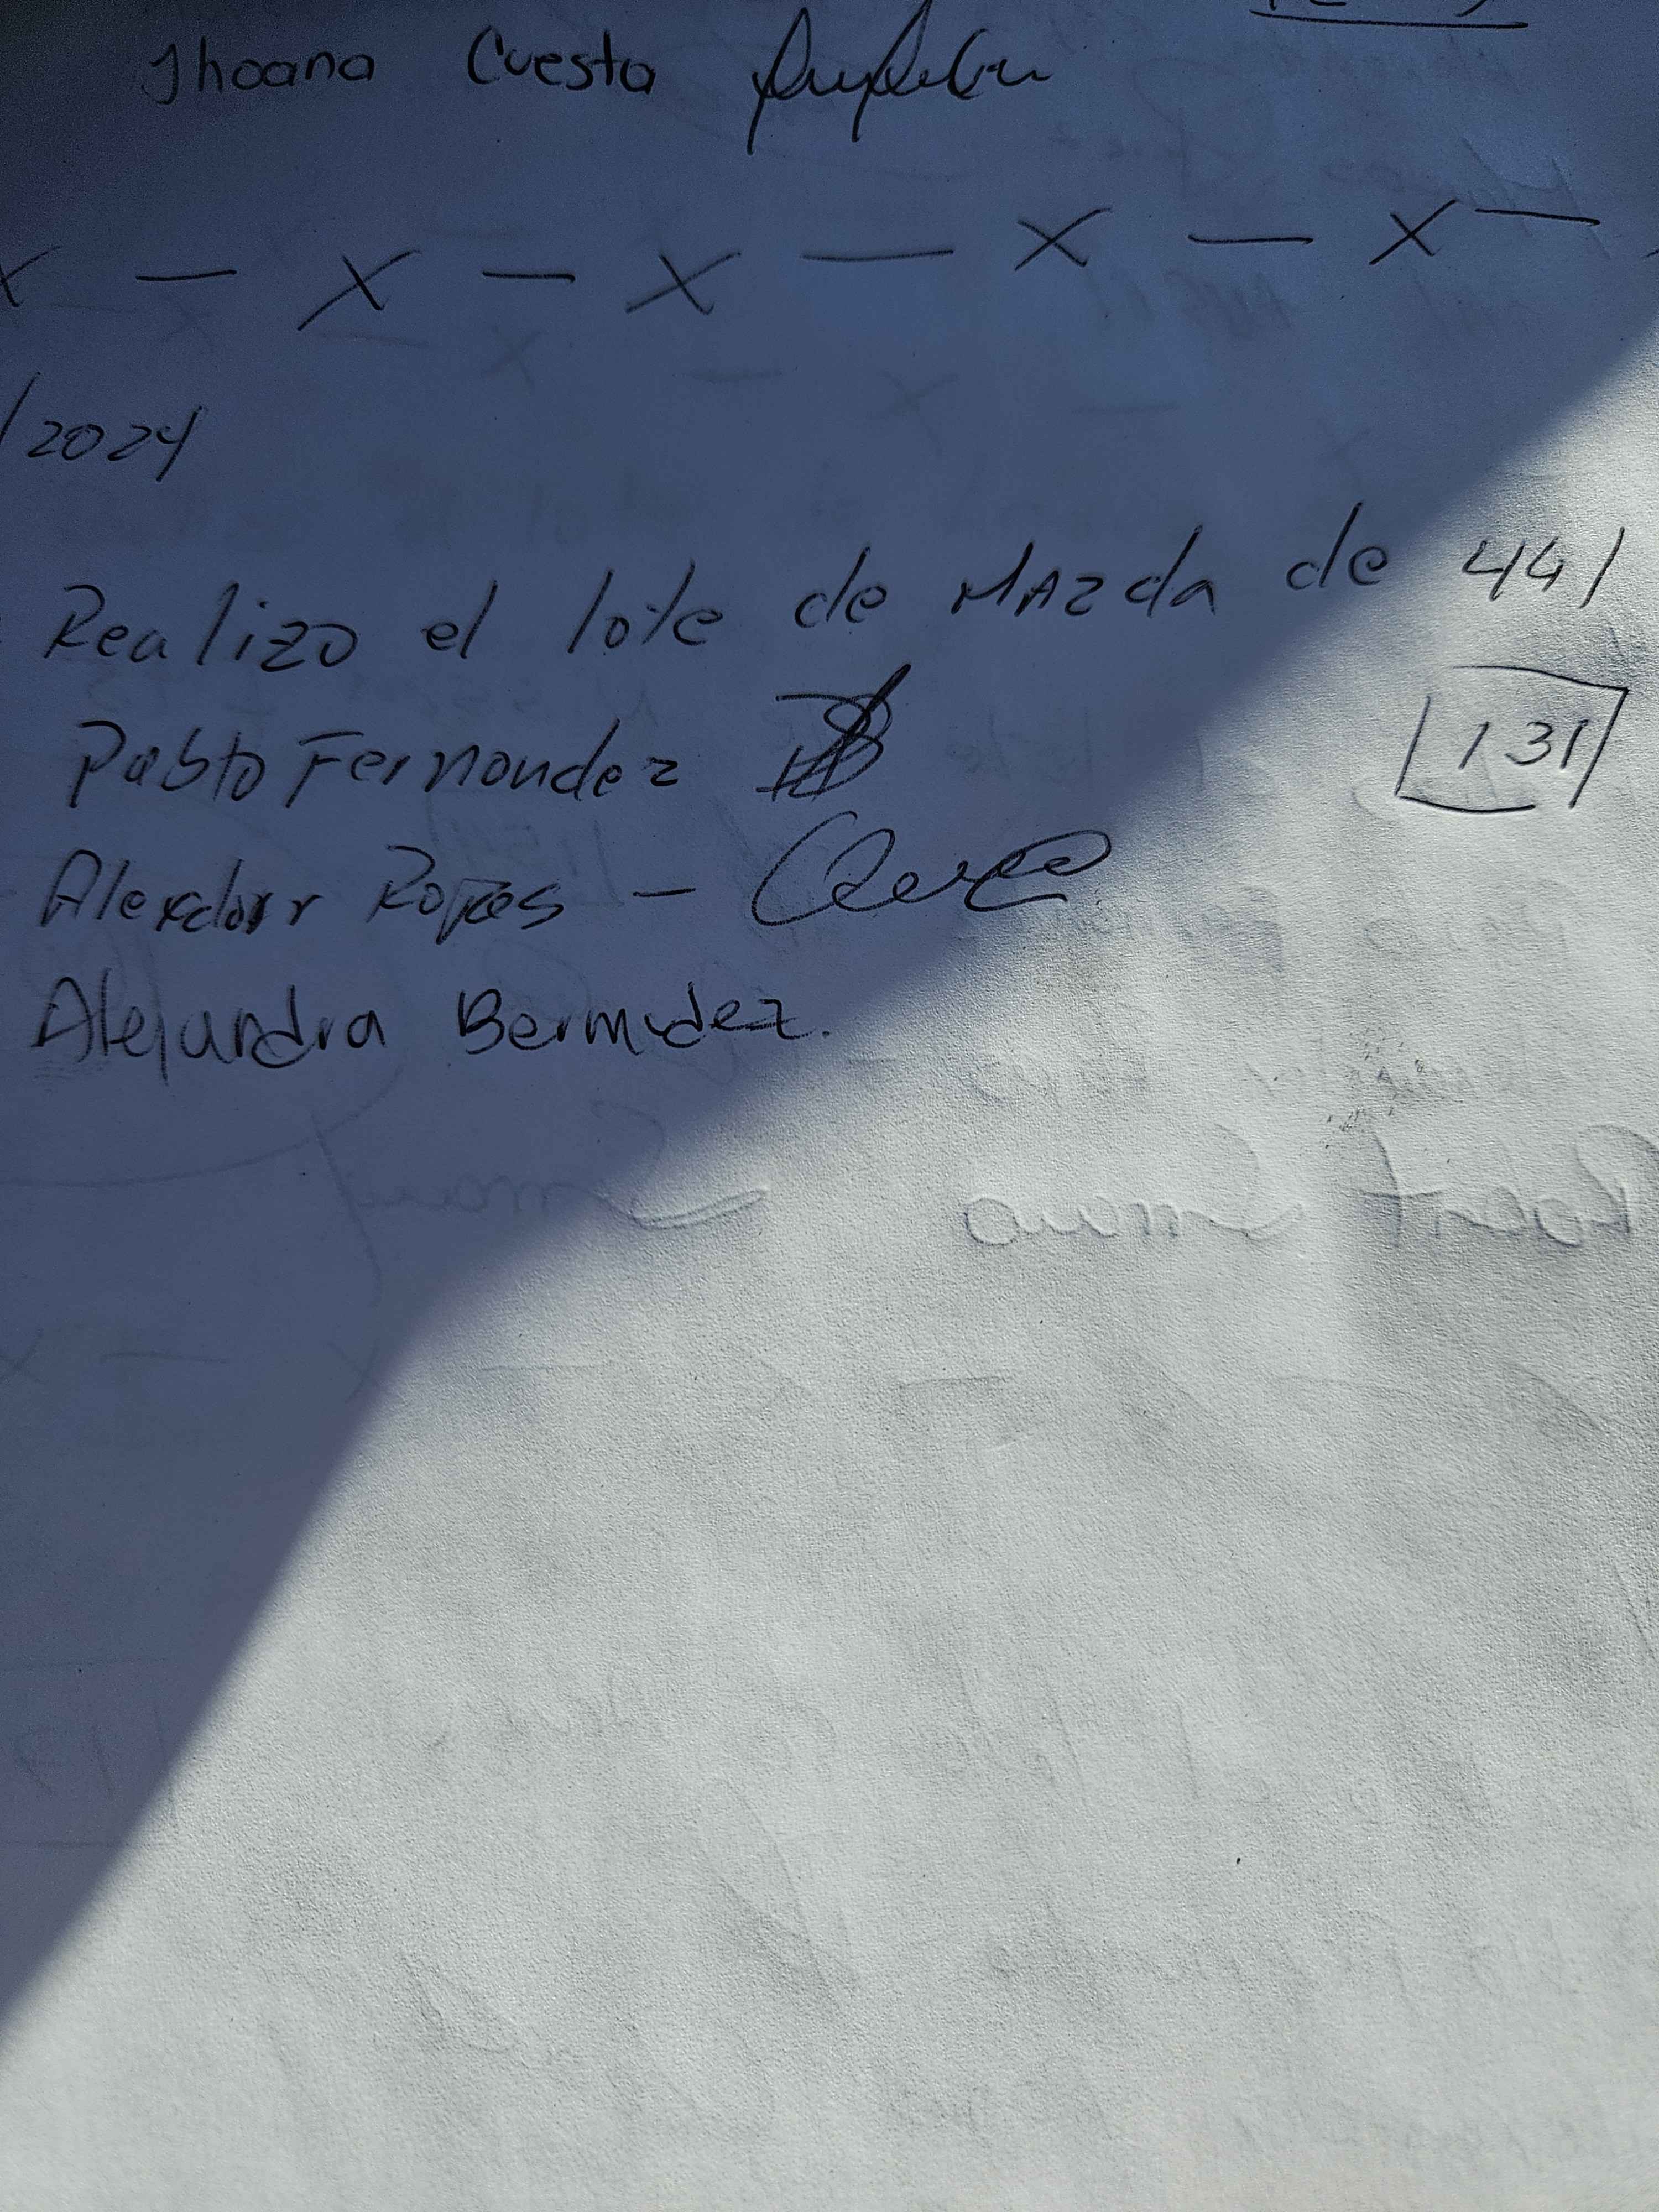 Jhoana Cuesta
x — x — x — x — x —
/2024
Realizo el lote de MAzda de 441
Pablo Fernandez
131
Rojas —
Alejandra Bermudez.